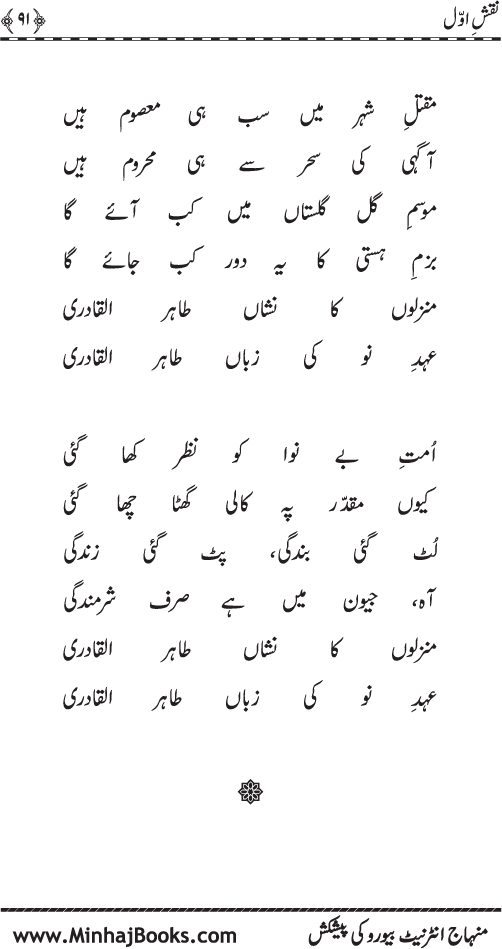 نقشِ اوّل
﴿۹۱﴾
مقتلِ شہر میں سب ہی معصوم ہیں
آگہی کی سحر سے ہی محروم ہیں
موسمِ گل گلستاں میں کب آئے گا
بزمِ ہستی کا یہ دور کب جائے گا
منزلوں کا نشاں طاہر القادری
عہدِ نو کی زباں طاہر القادری
اُمتِ بے نوا کو نظر کھا گئی
کیوں مقدّر پہ کالی گھٹا چھا گئی
لُٹ گئی بندگی، پٹ گئی زندگی
آہ، جیون میں ہے صرف شرمندگی
منزلوں کا نشاں طاہر القادری
عہدِ نو کی زباں طاہر القادری
منہاج انٹرنیٹ بیورو کی پیشکش
www.MinhajBooks.com